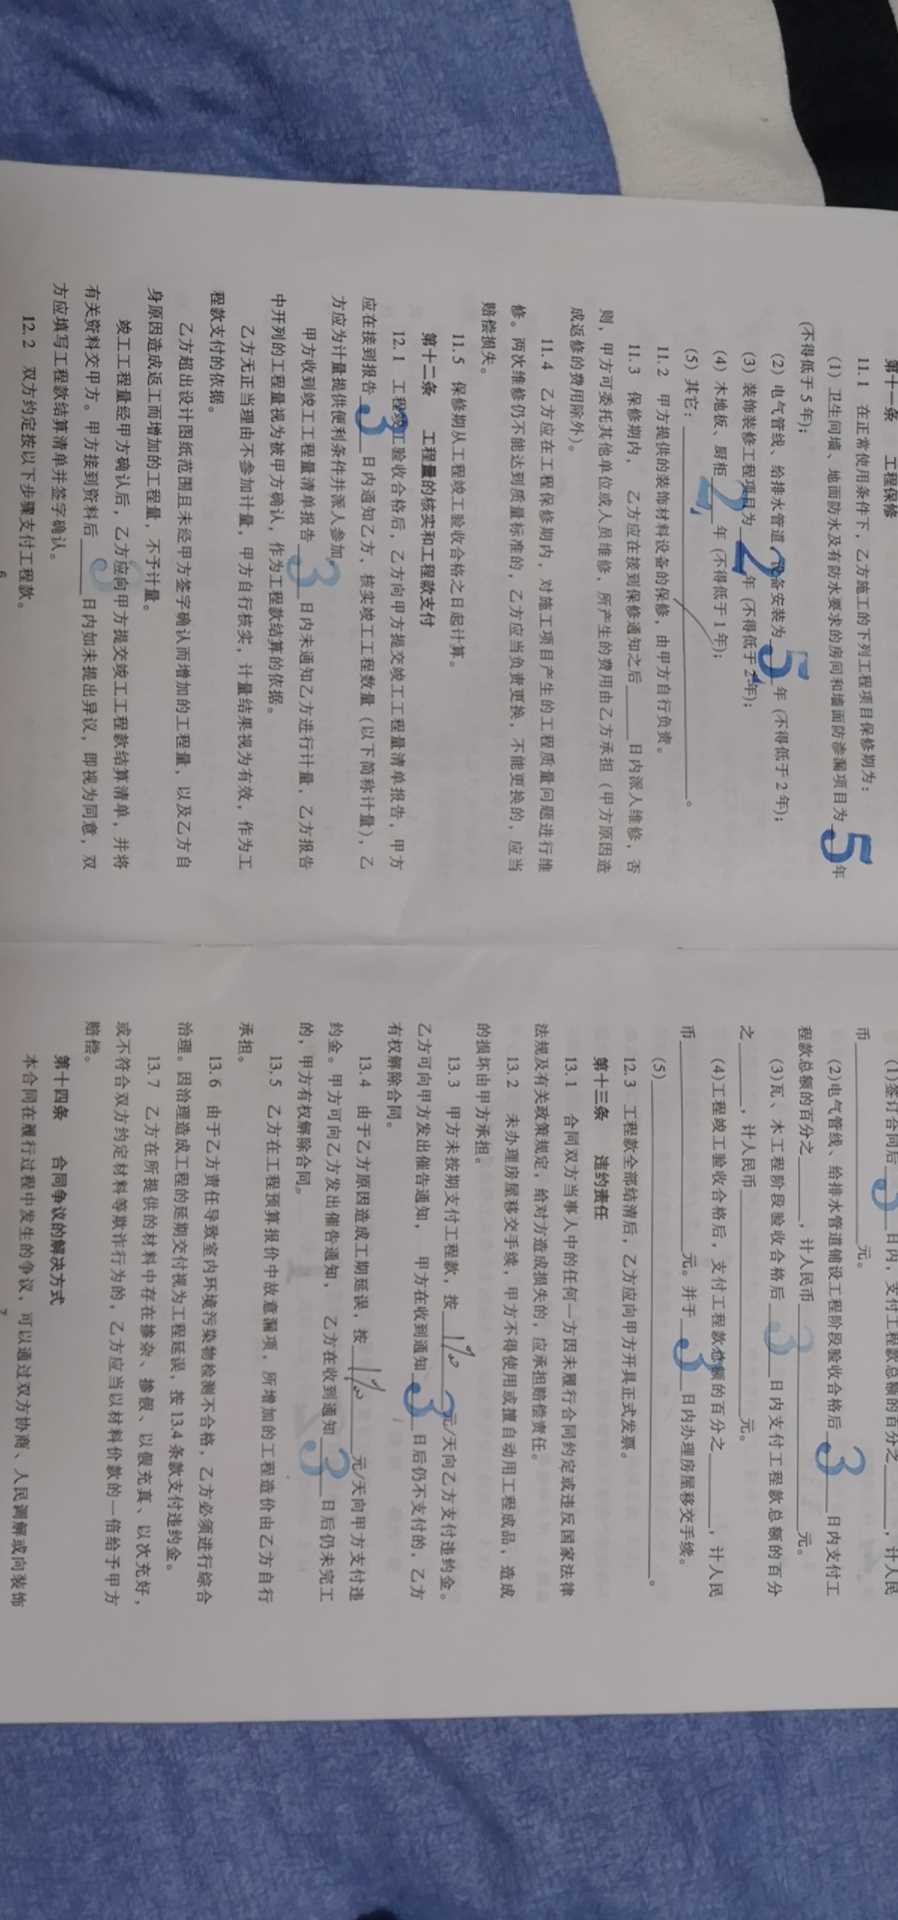 第十一条 工程保修
11.1 在正常使用条件下，乙方施工的下列工程项目保修期为：
(1) 卫生间墙、地面防水及有防水要求的房间和墙面防渗漏项目为 5 年
(不得低于 5 年)；
(2) 电气管线、给排水管道、设备安装为 5 年 (不得低于 2 年)；
(3) 装饰装修工程项目为 2 年 (不得低于 2 年)；
(4) 木地板、厨柜 2 年 (不得低于 1 年)；
(5) 其它：______。
11.2 甲方提供的装饰材料设备的保修，由甲方自行负责。
11.3 保修期内，乙方应在接到保修通知之后____日内派人维修，否
则，甲方可委托其他单位或人员维修，所产生的费用由乙方承担（甲方原因造
成返修的费用除外）。
11.4 乙方应在工程保修期内，对施工项目产生的工程质量问题进行维
修。两次维修仍不能达到质量标准的，乙方应当负责更换，不能更换的，应当
赔偿损失。
11.5 保修期从工程竣工验收合格之日起计算。
第十二条 工程量的核实和工程款支付
12.1 工程竣工验收合格后，乙方向甲方提交竣工工程量清单报告，甲方
应在接到报告 3 日内通知乙方，核实竣工工程数量（以下简称计量），乙
方应为计量提供便利条件并派人参加。
甲方收到竣工工程量清单报告 3 日内未通知乙方进行计量，乙方报告
中开列的工程量视为被甲方确认，作为工程款结算的依据。
乙方无正当理由不参加计量，甲方自行核实，计量结果视为有效，作为工
程款支付的依据。
乙方超出设计图纸范围且未经甲方签字确认而增加的工程量，以及乙方自
身原因造成返工而增加的工程量，不予计量。
竣工工程量经甲方确认后，乙方应向甲方提交竣工工程款结算清单，并将
有关资料交甲方。甲方接到资料后 3 日内如未提出异议，即视为同意，双
方应填写工程款结算清单并签字确认。
12.2 双方约定按以下步骤支付工程款。
6
(1)签订合同后 3 日内，支付工程款总额的百分之____，计人民
币______元。
(2)电气管线、给排水管道铺设工程阶段验收合格后 3 日内支付工
程款总额的百分之____，计人民币______元。
(3)瓦、木工程阶段验收合格后 3 日内支付工程款总额的百分
之____，计人民币______元。
(4)工程竣工验收合格后，支付工程款总额的百分之____，计人民
币______元。并于 3 日内办理房屋移交手续。
(5)______。
12.3 工程款全部结清后，乙方应向甲方开具正式发票。
第十三条 违约责任
13.1 合同双方当事人中的任何一方因未履行合同约定或违反国家法律
法规及有关政策规定，给对方造成损失的，应承担赔偿责任。
13.2 未办理房屋移交手续，甲方不得使用或擅自动用工程成品，造成
的损坏由甲方承担。
13.3 甲方未按期支付工程款，按 1% 元/天向乙方支付违约金。
乙方可向甲方发出催告通知， 甲方在收到通知 3 日后仍不支付的，乙方
有权解除合同。
13.4 由于乙方原因造成工期延误，按 1% 元/天向甲方支付违
约金。甲方可向乙方发出催告通知， 乙方在收到通知 3 日后仍未完工
的，甲方有权解除合同。
13.5 乙方在工程预算报价中故意漏项，所增加的工程造价由乙方自行
承担。
13.6 由于乙方责任导致室内环境污染物检测不合格，乙方必须进行综合
治理。因治理造成工程的延期交付视为工程延误，按 13.4 条款支付违约金。
13.7 乙方在所提供的材料中存在掺杂、掺假、以假充真、以次充好，
或不符合双方约定材料等欺诈行为的，乙方应当以材料价款的一倍给予甲方
赔偿。
第十四条 合同争议的解决方式
本合同在履行过程中发生的争议，可以通过双方协商、人民调解或向装饰
7